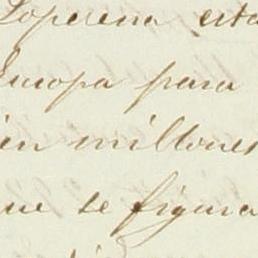 Loperena esta
Europa para
ien millones
que se figura